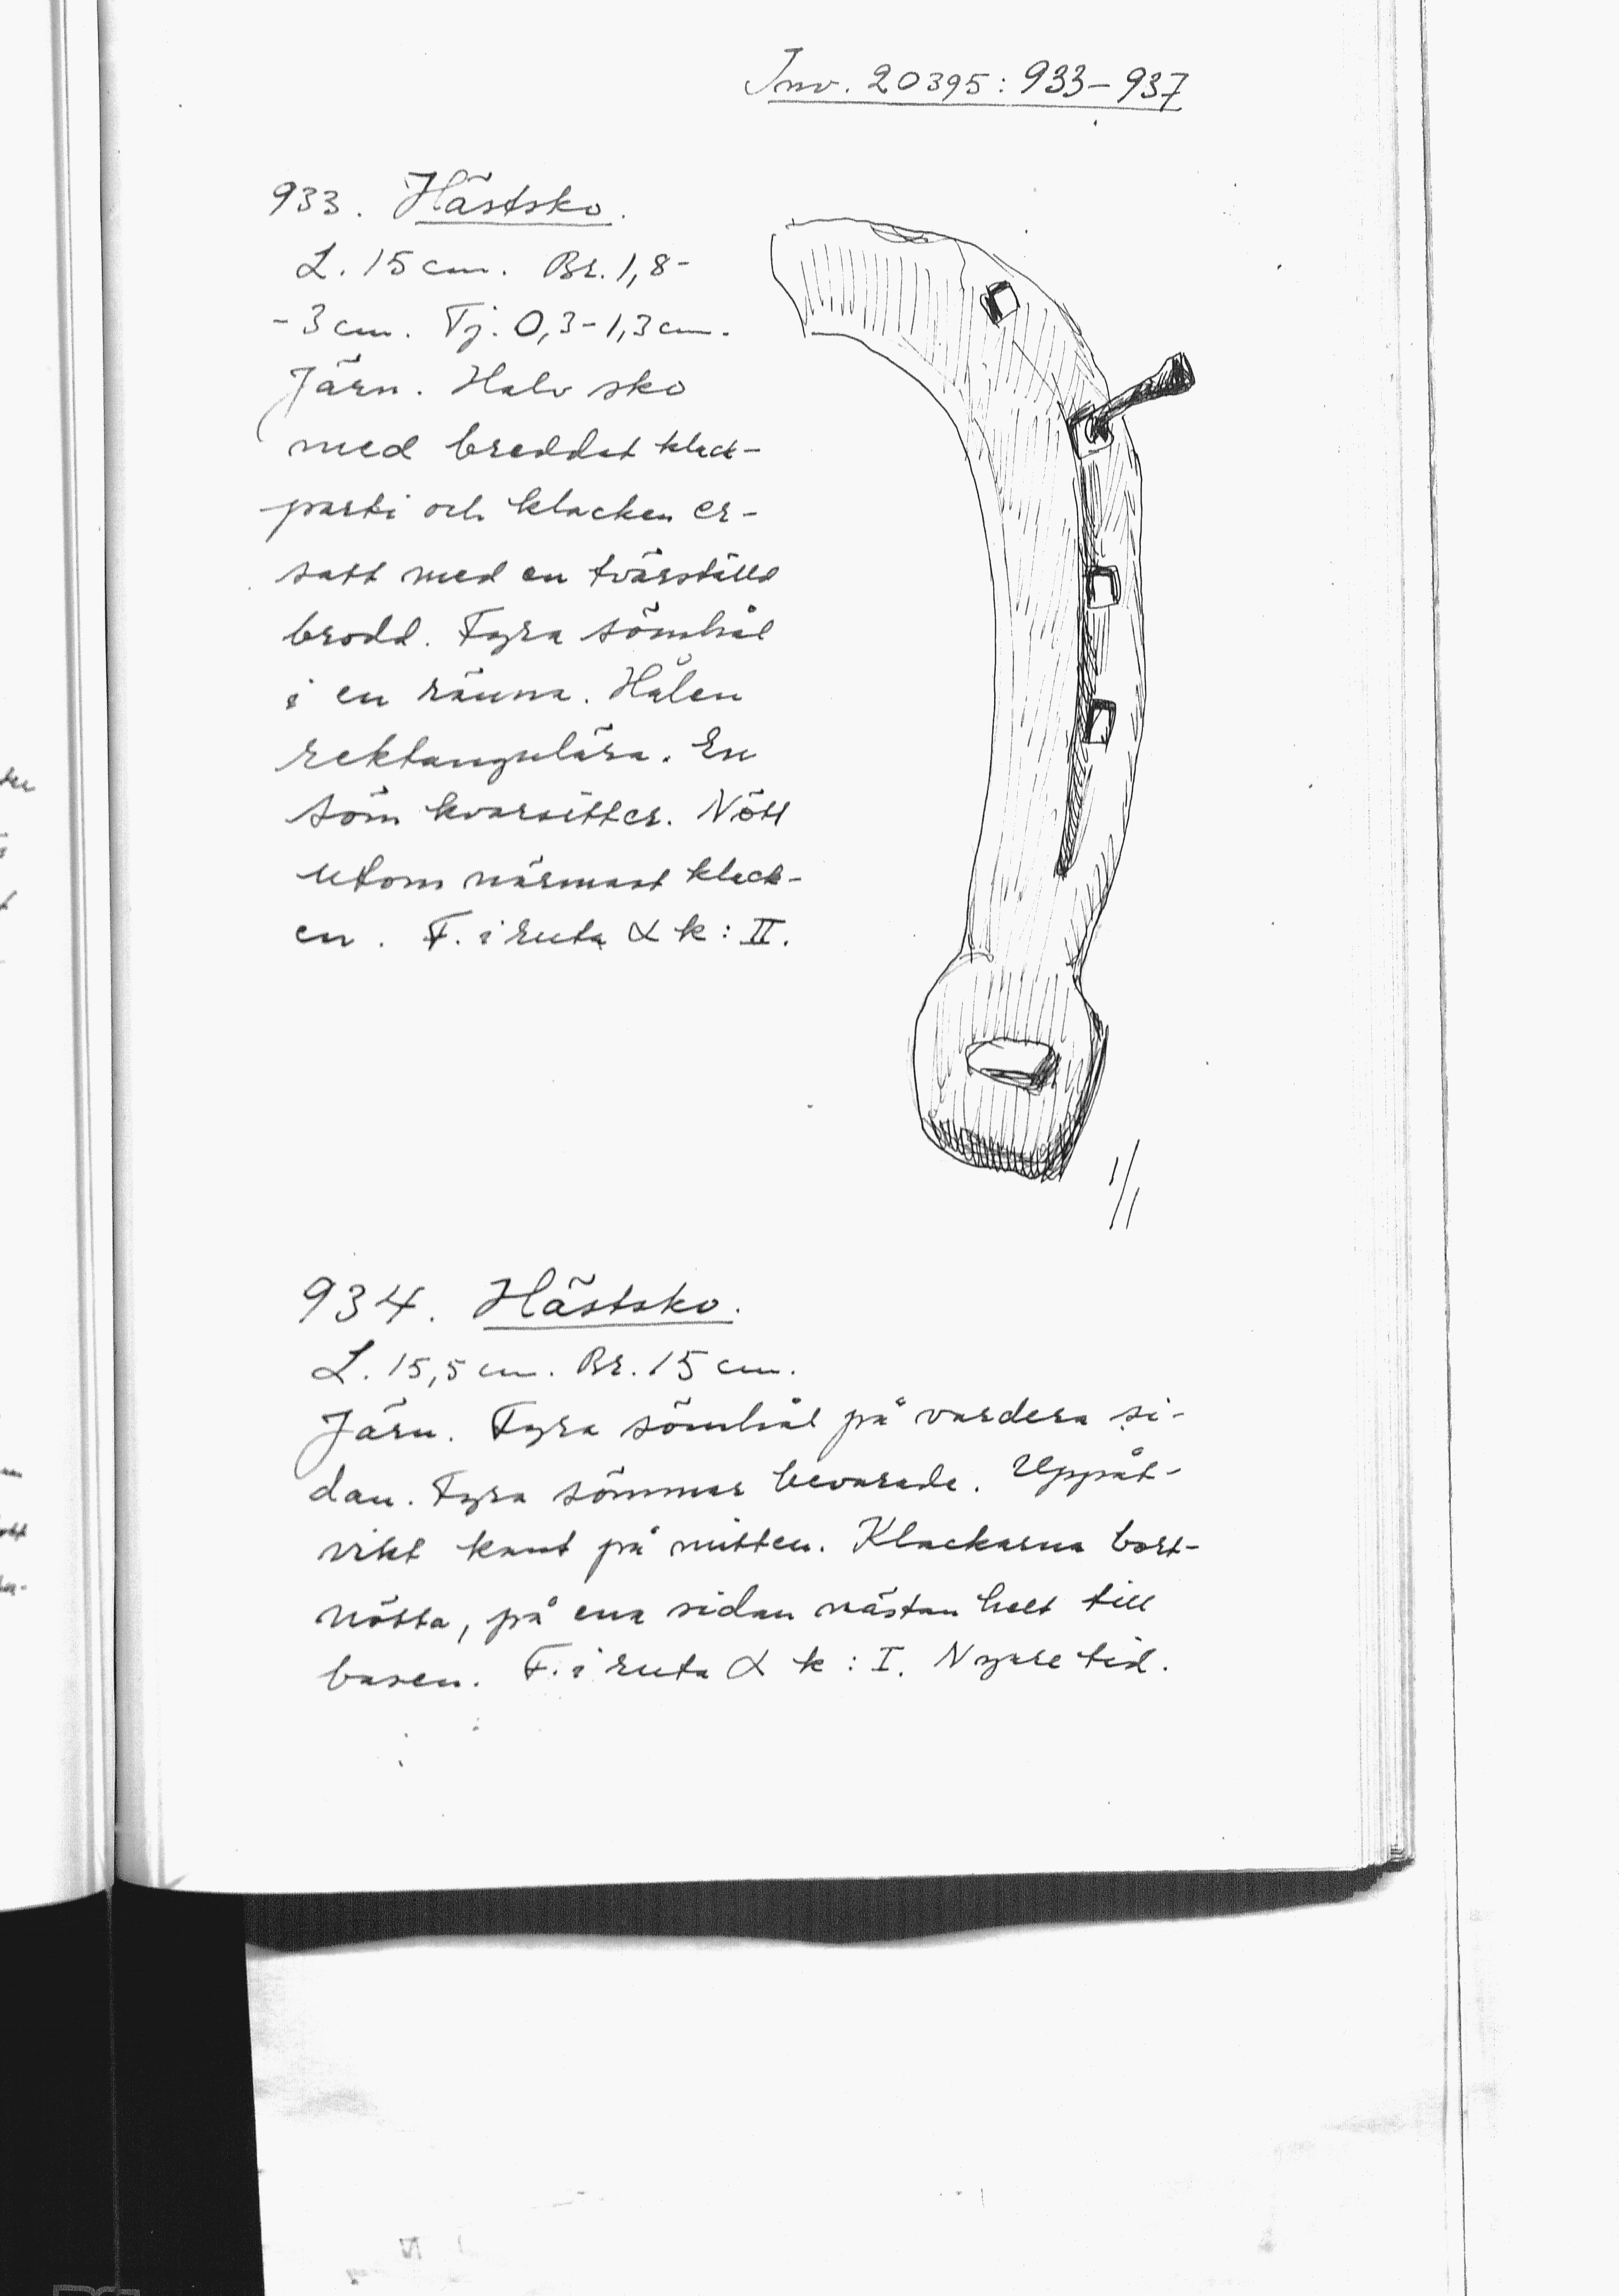 Inv. 20395: 933-937
933. Hästsko.
L. 15 cm. Br. 1,8-
-3 cm. Tj. 0,3-1,3 cm.
Järn. Halv sko
med breddat klack-
parti och klacken er-
satt med en tvärställd
brodd. Fyra sömhål
i en ränna. Hålen
rektangulära. En
söm kvarsitter. Nött
utom närmast klack-
en. F. i ruta α k: II.
1/1
934. Hästsko.
L. 15,5 cm. Br. 15 cm.
Järn. Fyra sömhål på vardera si-
dan. Fyra sömmar bevarade. Uppåt-
vikt kant på mitten. Klackarna bort-
nötta, på ena sidan nästan helt till
basen. F. i ruta α k: I. Nyare tid.